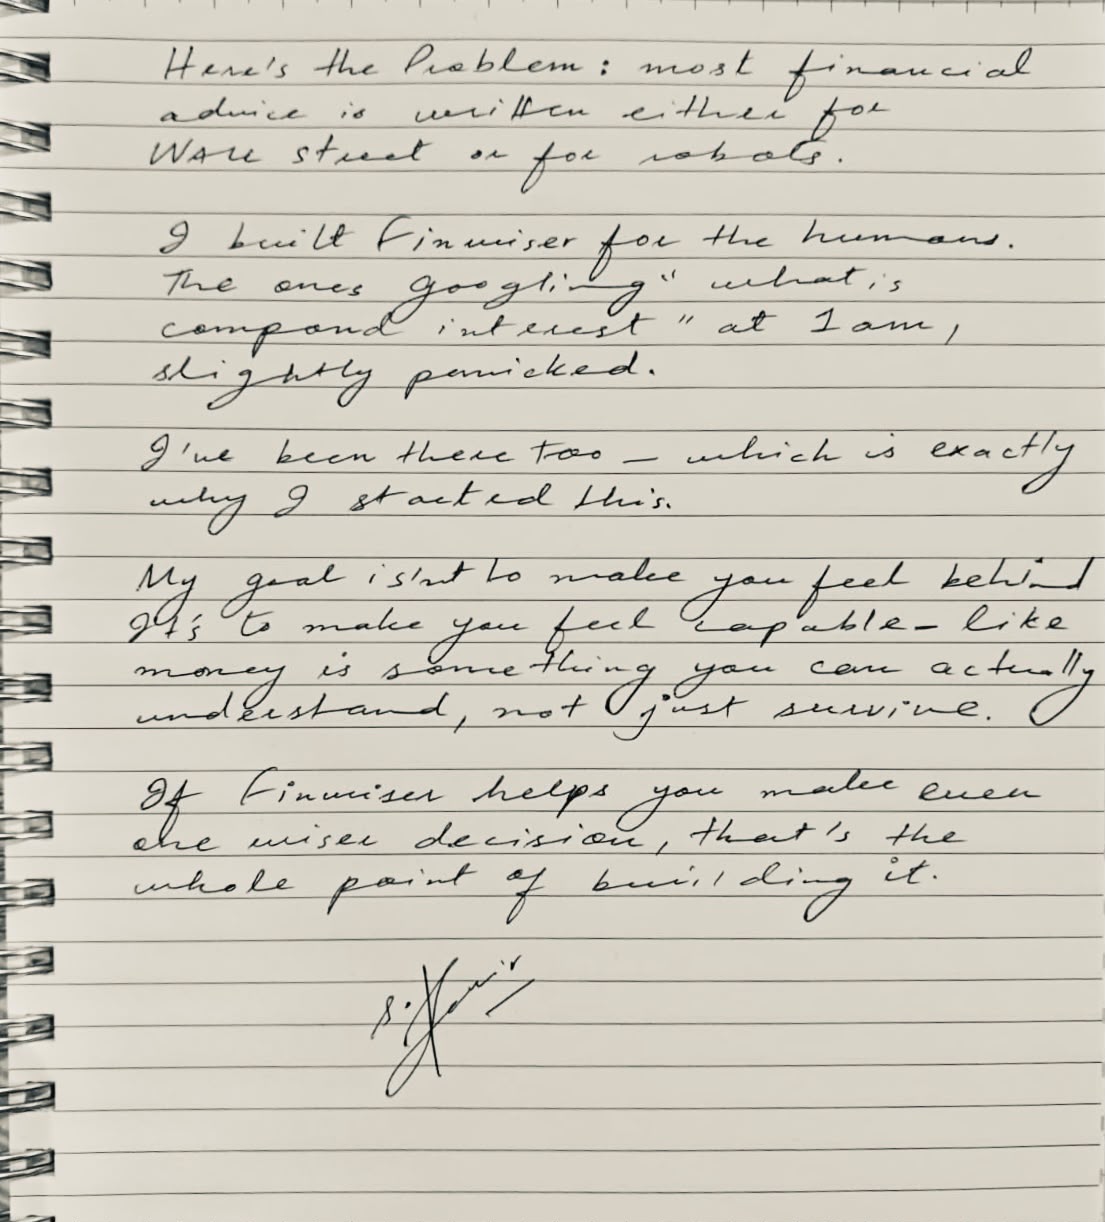 Here's the Problem: most financial
advice is written either for
Wall street or for robots.
I built Finwiser for the humans.
The ones googling "what is
compond interest" at 1am,
slightly panicked.
I've been there too – which is exactly
why I started this.
My goal is'nt to make you feel behind
It's to make you feel capable – like
money is something you can actually
understand, not just survive.
If Finwiser helps you make even
one wiser decision, that's the
whole point of building it.